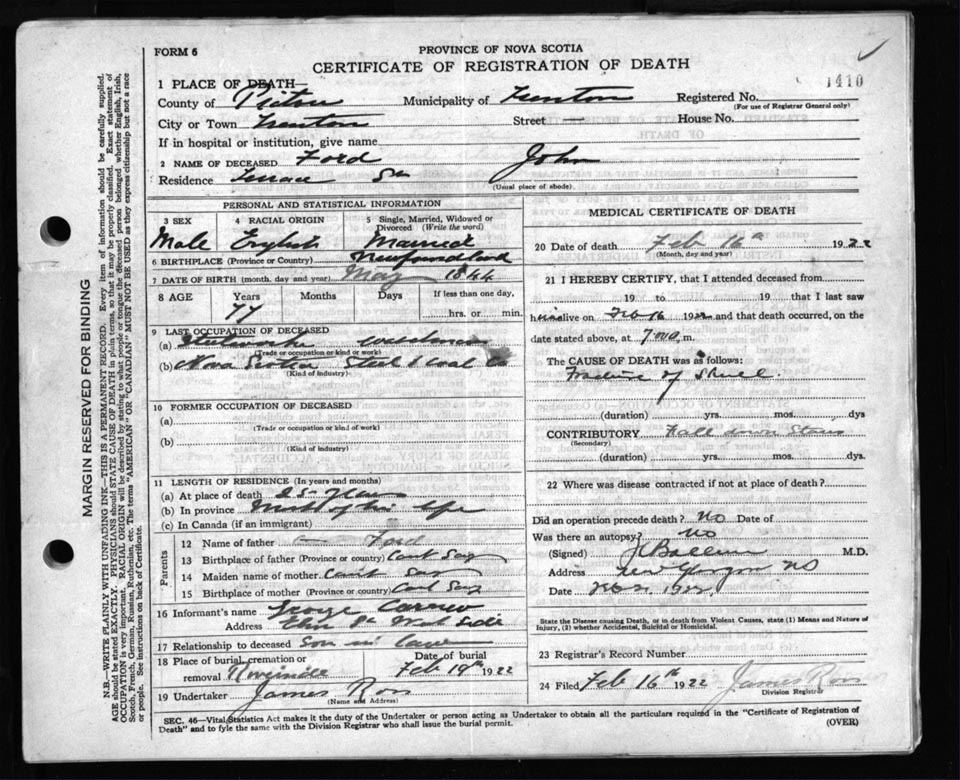 FORM 6
PROVINCE OF NOVA SCOTIA
CERTIFICATE OF REGISTRATION OF DEATH
1410
1 PLACE OF DEATH—
County of Pictou Municipality of Trenton Registered No.
(For use of Registrar General only)
City or Town Trenton Street — House No.
If in hospital or institution, give name
2 NAME OF DECEASED Ford John
Residence Terrace
(Usual place of abode)
PERSONAL AND STATISTICAL INFORMATION
3 SEX
Male
4 RACIAL ORIGIN
English
5 Single, Married, Widowed or Divorced (Write the word)
Married
6 BIRTHPLACE (Province or Country) Newfoundland
7 DATE OF BIRTH (month, day and year) May 1844
8 AGE Years Months Days If less than one day,
77 hrs. or min.
9 LAST OCCUPATION OF DECEASED
(a) Steelworks Watchman
(Trade or occupation or kind of work)
(b) Nova Scotia Steel & Coal Co
(Kind of industry)
10 FORMER OCCUPATION OF DECEASED
(a)
(Trade or occupation or kind of work)
(b)
(Kind of industry)
11 LENGTH OF RESIDENCE (In years and months)
(a) At place of death 25 years
(b) In province Most of his life
(c) In Canada (if an immigrant)
Parents
12 Name of father — Ford
13 Birthplace of father (Province or country) Cant Say
14 Maiden name of mother Cant Say
15 Birthplace of mother (Province or country) Cant Say
16 Informant's name George
Address West Side
17 Relationship to deceased Son in Law
18 Place of burial, cremation or removal Date of burial
Feb 19th 1922
19 Undertaker James Ross
(Name and Address)
MEDICAL CERTIFICATE OF DEATH
20 Date of death Feb 16th 1922
(Month, day and year)
21 I HEREBY CERTIFY, that I attended deceased from
19 to 19 that I last saw
him alive on Feb 16 1922 and that death occurred, on the
date stated above, at 7 m.
The CAUSE OF DEATH was as follows:
Fracture of Skull.
(duration) yrs. mos. dys
CONTRIBUTORY Fall down Stairs
(Secondary)
(duration) yrs. mos. dys.
22 Where was disease contracted if not at place of death?
Did an operation precede death? No Date of
Was there an autopsy? No
(Signed) M.D.
Address New Glasgow NS
Date Feb 1922.
State the Disease causing Death, or in death from Violent Causes, state (1) Means and Nature of Injury, (2) whether Accidental, Suicidal or Homicidal.
23 Registrar's Record Number
24 Filed Feb 16th 1922 James Ross
Division Registrar
SEC. 46—Vital Statistics Act makes it the duty of the Undertaker or person acting as Undertaker to obtain all the particulars required in the "Certificate of Registration of
Death" and to fyle the same with the Division Registrar who shall issue the burial permit.
(OVER)
MARGIN RESERVED FOR BINDING
N.B.—WRITE PLAINLY WITH UNFADING INK—THIS IS A PERMANENT RECORD. Every item of information should be carefully supplied.
AGE should be stated EXACTLY. PHYSICIANS should STATE CAUSE OF DEATH in plain terms, so that it may be properly classified. Exact statement of
OCCUPATION is very important. RACIAL ORIGIN will be described by stating to what people or tongue the deceased person belonged whether English, Irish,
Scotch, French, German, Russian, Ruthenian, etc. The terms "AMERICAN" OR "CANADIAN" MUST NOT BE USED as they express citizenship but not a race
or people. See instructions on back of Certificate.